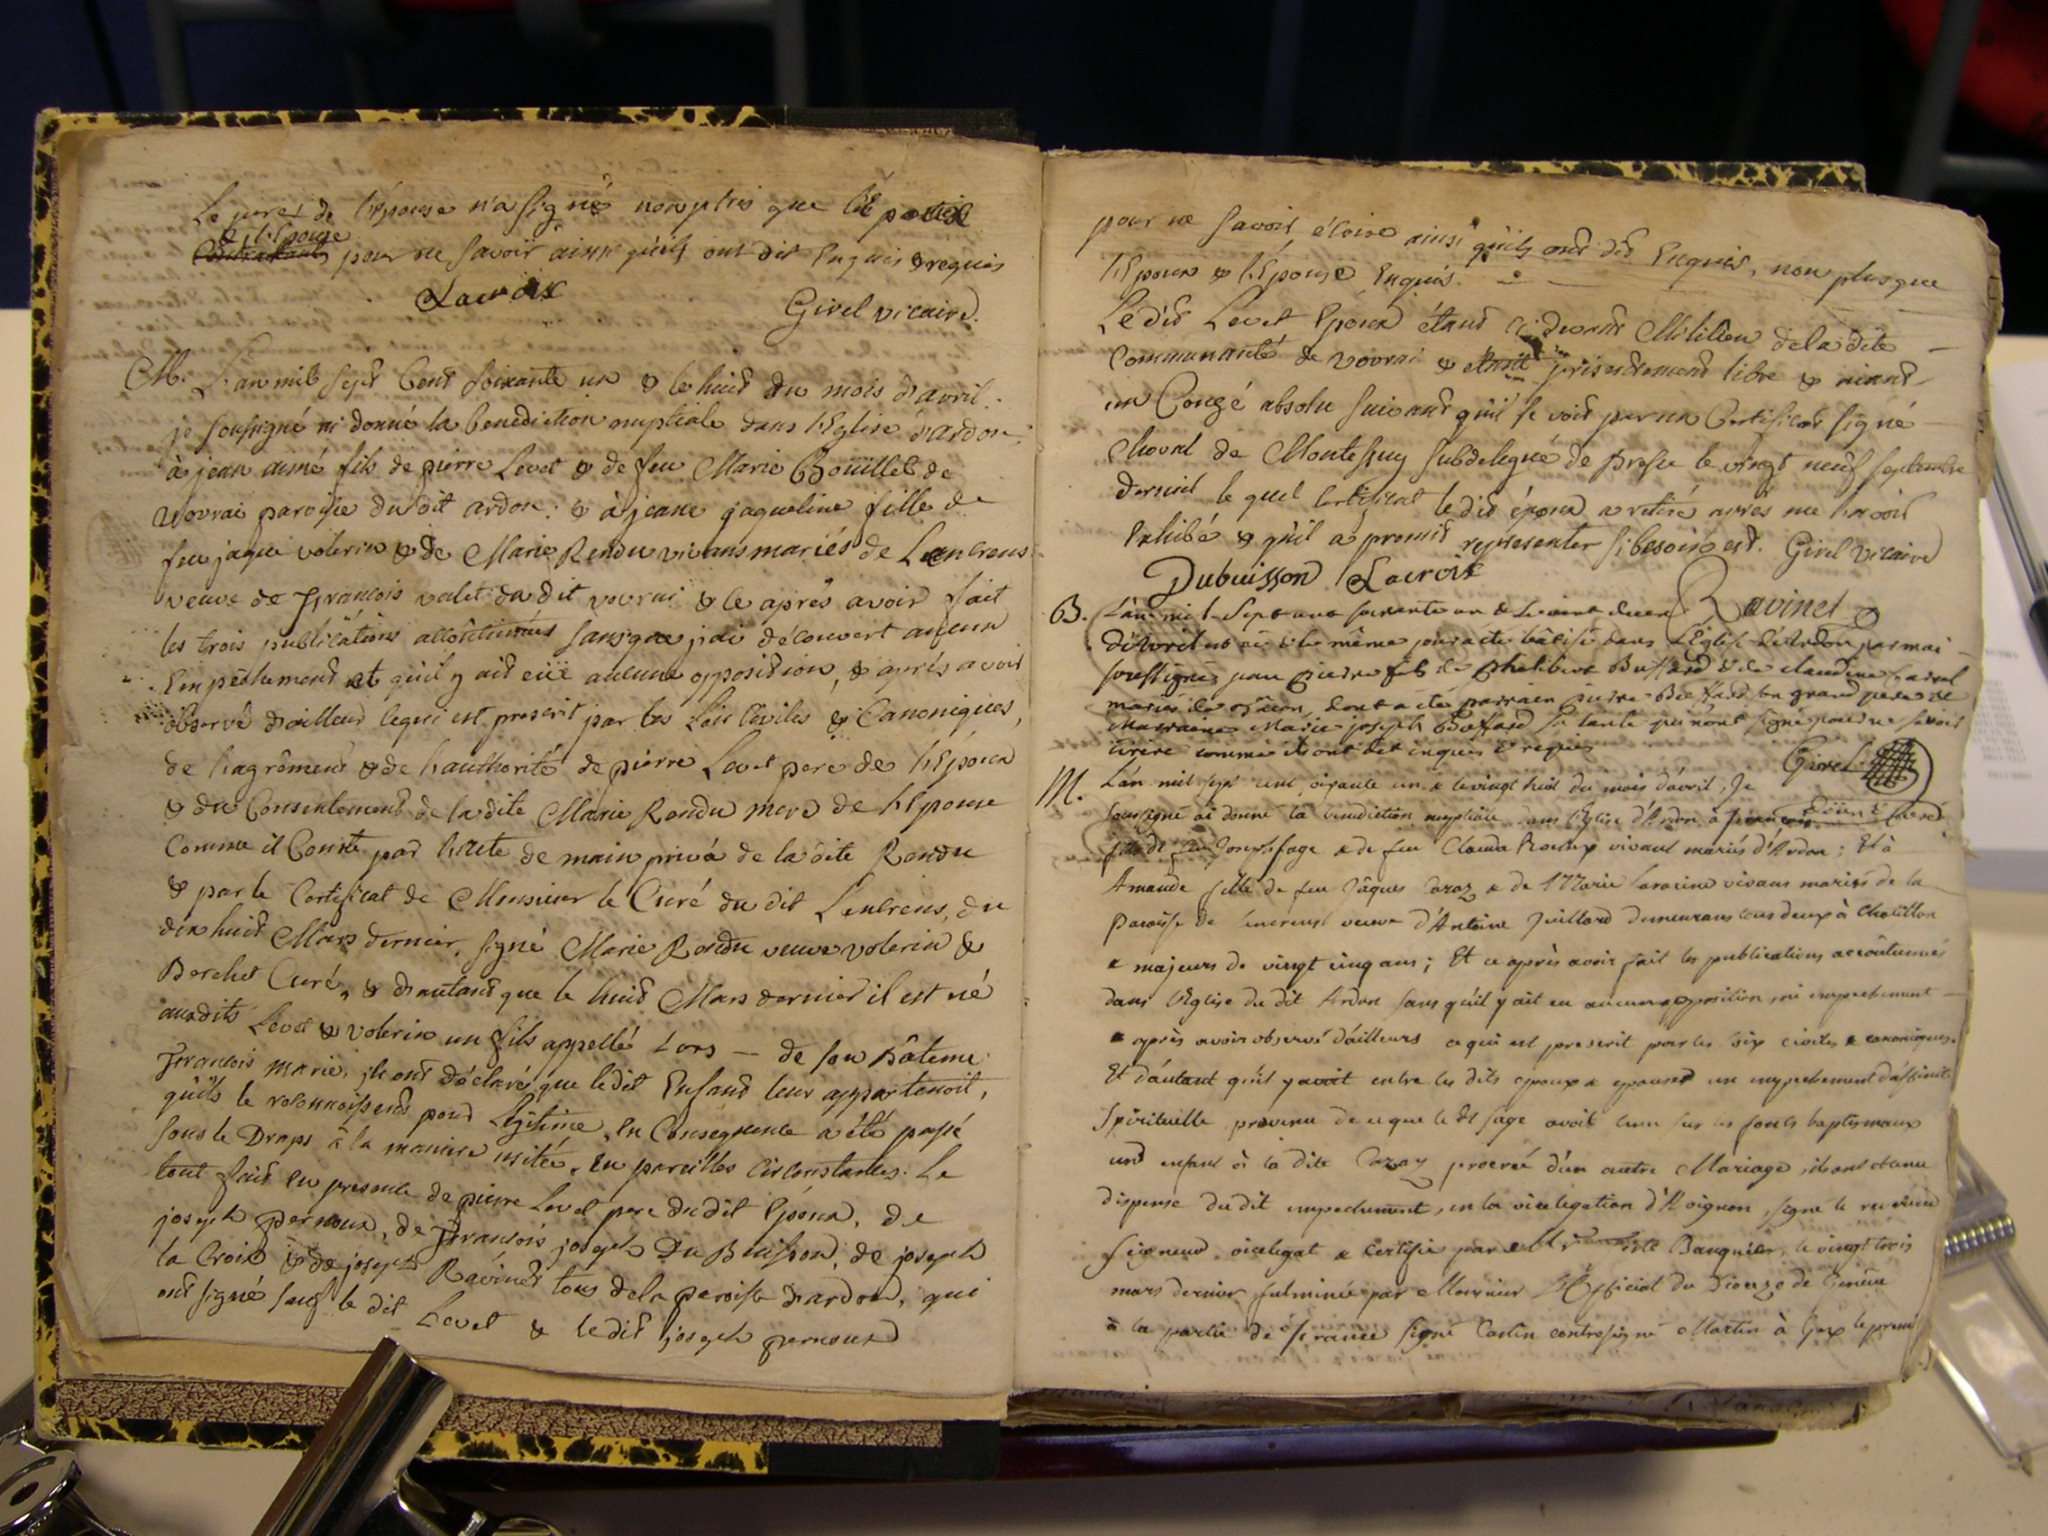 Le pere de l'épouse n'a signé non plus que
& l'Epouse
pour ne savoir ainsi qu'ils ont dit Enquis & requis
Lacroix
Girel vicaire.
M. L'an mil sept Cent soixante un & le huit du mois d'avril.
je soussigné ai donné la benediction nuptiale dans l'Eglise d'Ardon:
à jean aimé fils de pierre Levet & de feu Marie Boüillet de
Vovrai paroisse du dit ardon: & à jeane jaqueline fille de
feu jaque volerin & de Marie Rendu vivans mariés de Lancrens
veuve de François valet du dit vovrai & le après avoir fait
les trois publications accoutumées sans que j'ai découvert aucun
Empêchement et qu'il y ait eüe aucune opposition, & après avoir
observé d'ailleurs ce qui est prescrit par les Lois Civiles & Canoniques,
de l'agrément & de l'authorité de pierre Levet pere de l'Epoux
& du Consentement de la dite Marie Rondu mere de l'Epouse
Comme il Conste par l'acte de main privá de la dite Rondu
& par le Certificat de Monsieur le Curé du dit Lancrens, du
dix huit Mars dernier, signé Marie Rondu veuve volerin &
Borchet Curé, & d'autant que le huit Mars dernier il est né
auxdits Levet & volerin un fils appellé Lors — de son Bâteme
François marie, ils ont déclaré que ledit Enfant leur appartenoit,
qu'ils le reconnoissent pour Légitime, En Conséquence a été passé
sous le Draps à la maniere usitée, En pareilles Circonstances. Le
tout fait En presence de pierre Levet pere du dit Epoux, de
joseph pernoux, de François joseph Du Buisson, de joseph
la Croix & de joseph Ravinet tous de la paroisse d'ardon, qui
ont signé sauf le dit Levet & ledit joseph pernoux
pour ne savoir écrire ainsi qu'ils ont dit Enquis, non plus que
l'Epoux & l'Epouse Enquis.
Le dit Levet Epoux étant ci devant Milicien de la dite
Communauté de vovrai & étant présentement libre & aiant
un Congé absolu suivant qu'il se voit par un Certificat signé
Choval de Montessuy subdelegué de Bresse le vingt neuf septembre
dernier le quel Certificat le dit époux a retiré après me l'avoir
Exhibé & qu'il a promit representer si besoin est. Girel vicaire
Dubuisson Lacroix Ravinet
B. L'an mil sept cent soixante un &
d'avril est né & le même jour a été bâtisé dans l'Eglise de Ardon par moi
soussigné, jean pierre fils de philibert Buffard & de claudine
mariés de ogneon, dont a été parrain pierre Buffard son grand pere et
marraine Marie joseph Buffard sa tante qui n'ont signé pour ne savoir
écrire comme ils ont dit enquis & requis
Girel
M. L'an mil sept cent soixante un & le vingt huit du mois d'avril, Je
soussigné ai donné la benediction nuptiale dans l'Eglise d'Ardon à
fils de feu Joseph fage & de feu Clauda vivant mariés d'Ardon; Et à
Amande fille de feu Jâques & de Marie vivans mariés de la
paroisse de Lancrens veuve d'Antoine Juillard demeurans tous deux à Châtillon
& majeurs de vingt cinq ans; Et ce après avoir fait les publications accoûtumées
dans l'Eglise du dit Ardon sans qu'il y ait eu aucune opposition, ni empechement
& après avoir observé d'ailleurs ce qui est prescrit par les loix civiles & canoniques.
Et d'autant qu'il y avoit entre les dits epoux & epouse un empechement d'affinité
Spirituelle provenu de ce que le dt fage avoit tenu sur les fonts baptismaux
und enfant à la dite procréé d'un autre Mariage, ils ont obtenu
dispense du dit empechement, en la vicelegation d'Avignon, signé le
seigneur vicelegat & certifié par Banquier, le vingt trois
mars dernier, fulminée par Monsieur l'Official du Diocèse de Genève
à la partie de france signé Castin contresigné Martin à Gex le